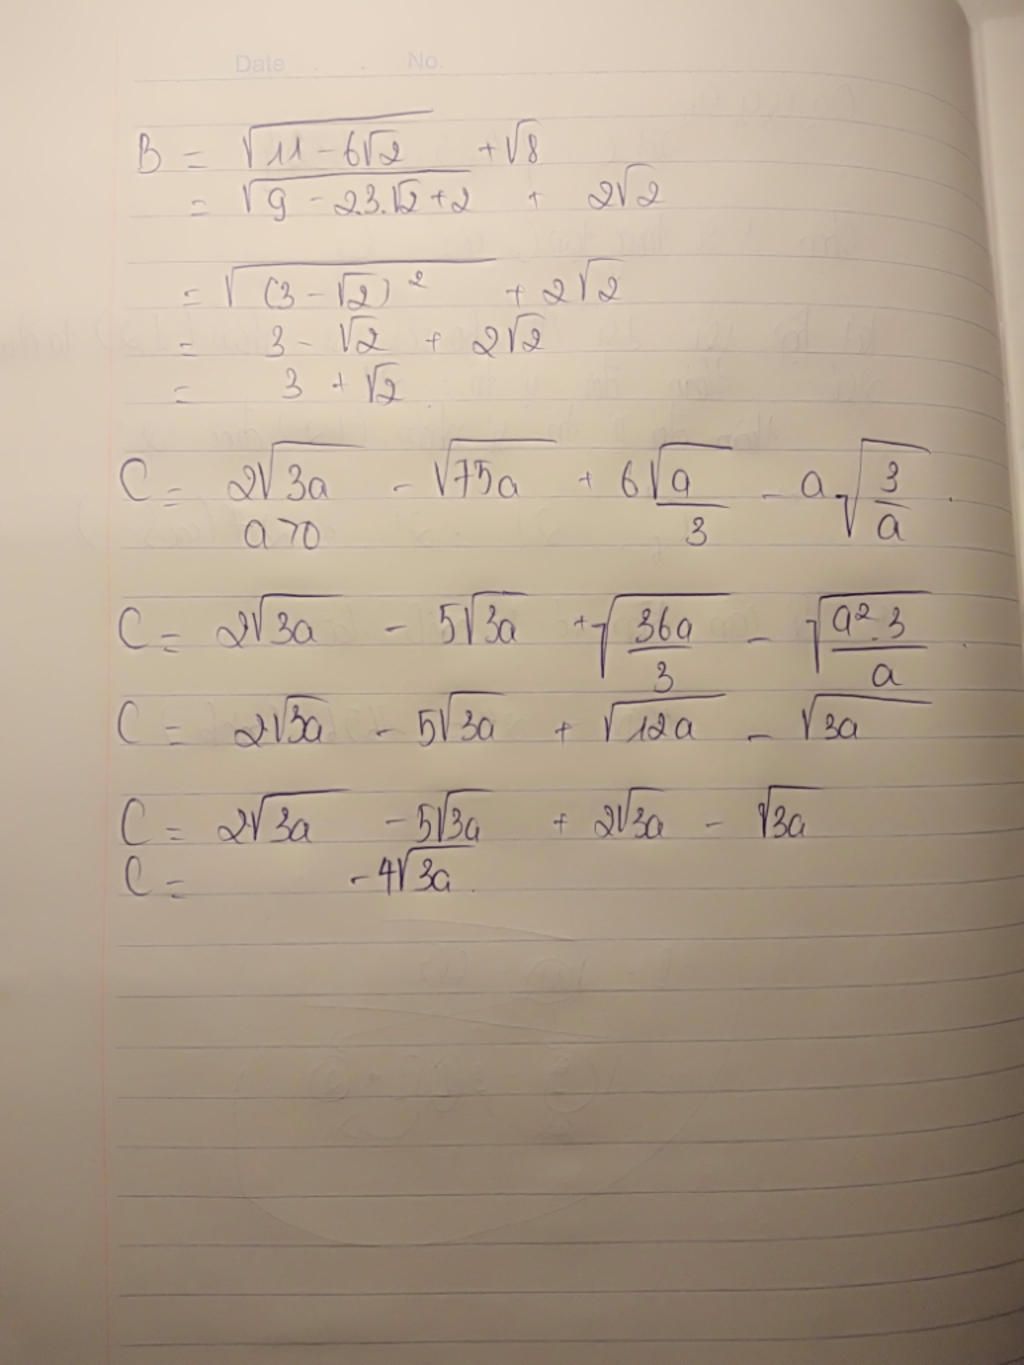 Date . . No.
B = √(11 - 6√2) + √8
= √(9 - 2.3.√2 + 2) + 2√2
= √((3 - √2)²) + 2√2
= 3 - √2 + 2√2
= 3 + √2
C = 2√3a - √75a + 6√(a/3) - a√(3/a)
a > 0
C = 2√3a - 5√3a + √(36a/3) - √(a².3/a)
C = 2√3a - 5√3a + √12a - √3a
C = 2√3a - 5√3a + 2√3a - √3a
C = -4√3a